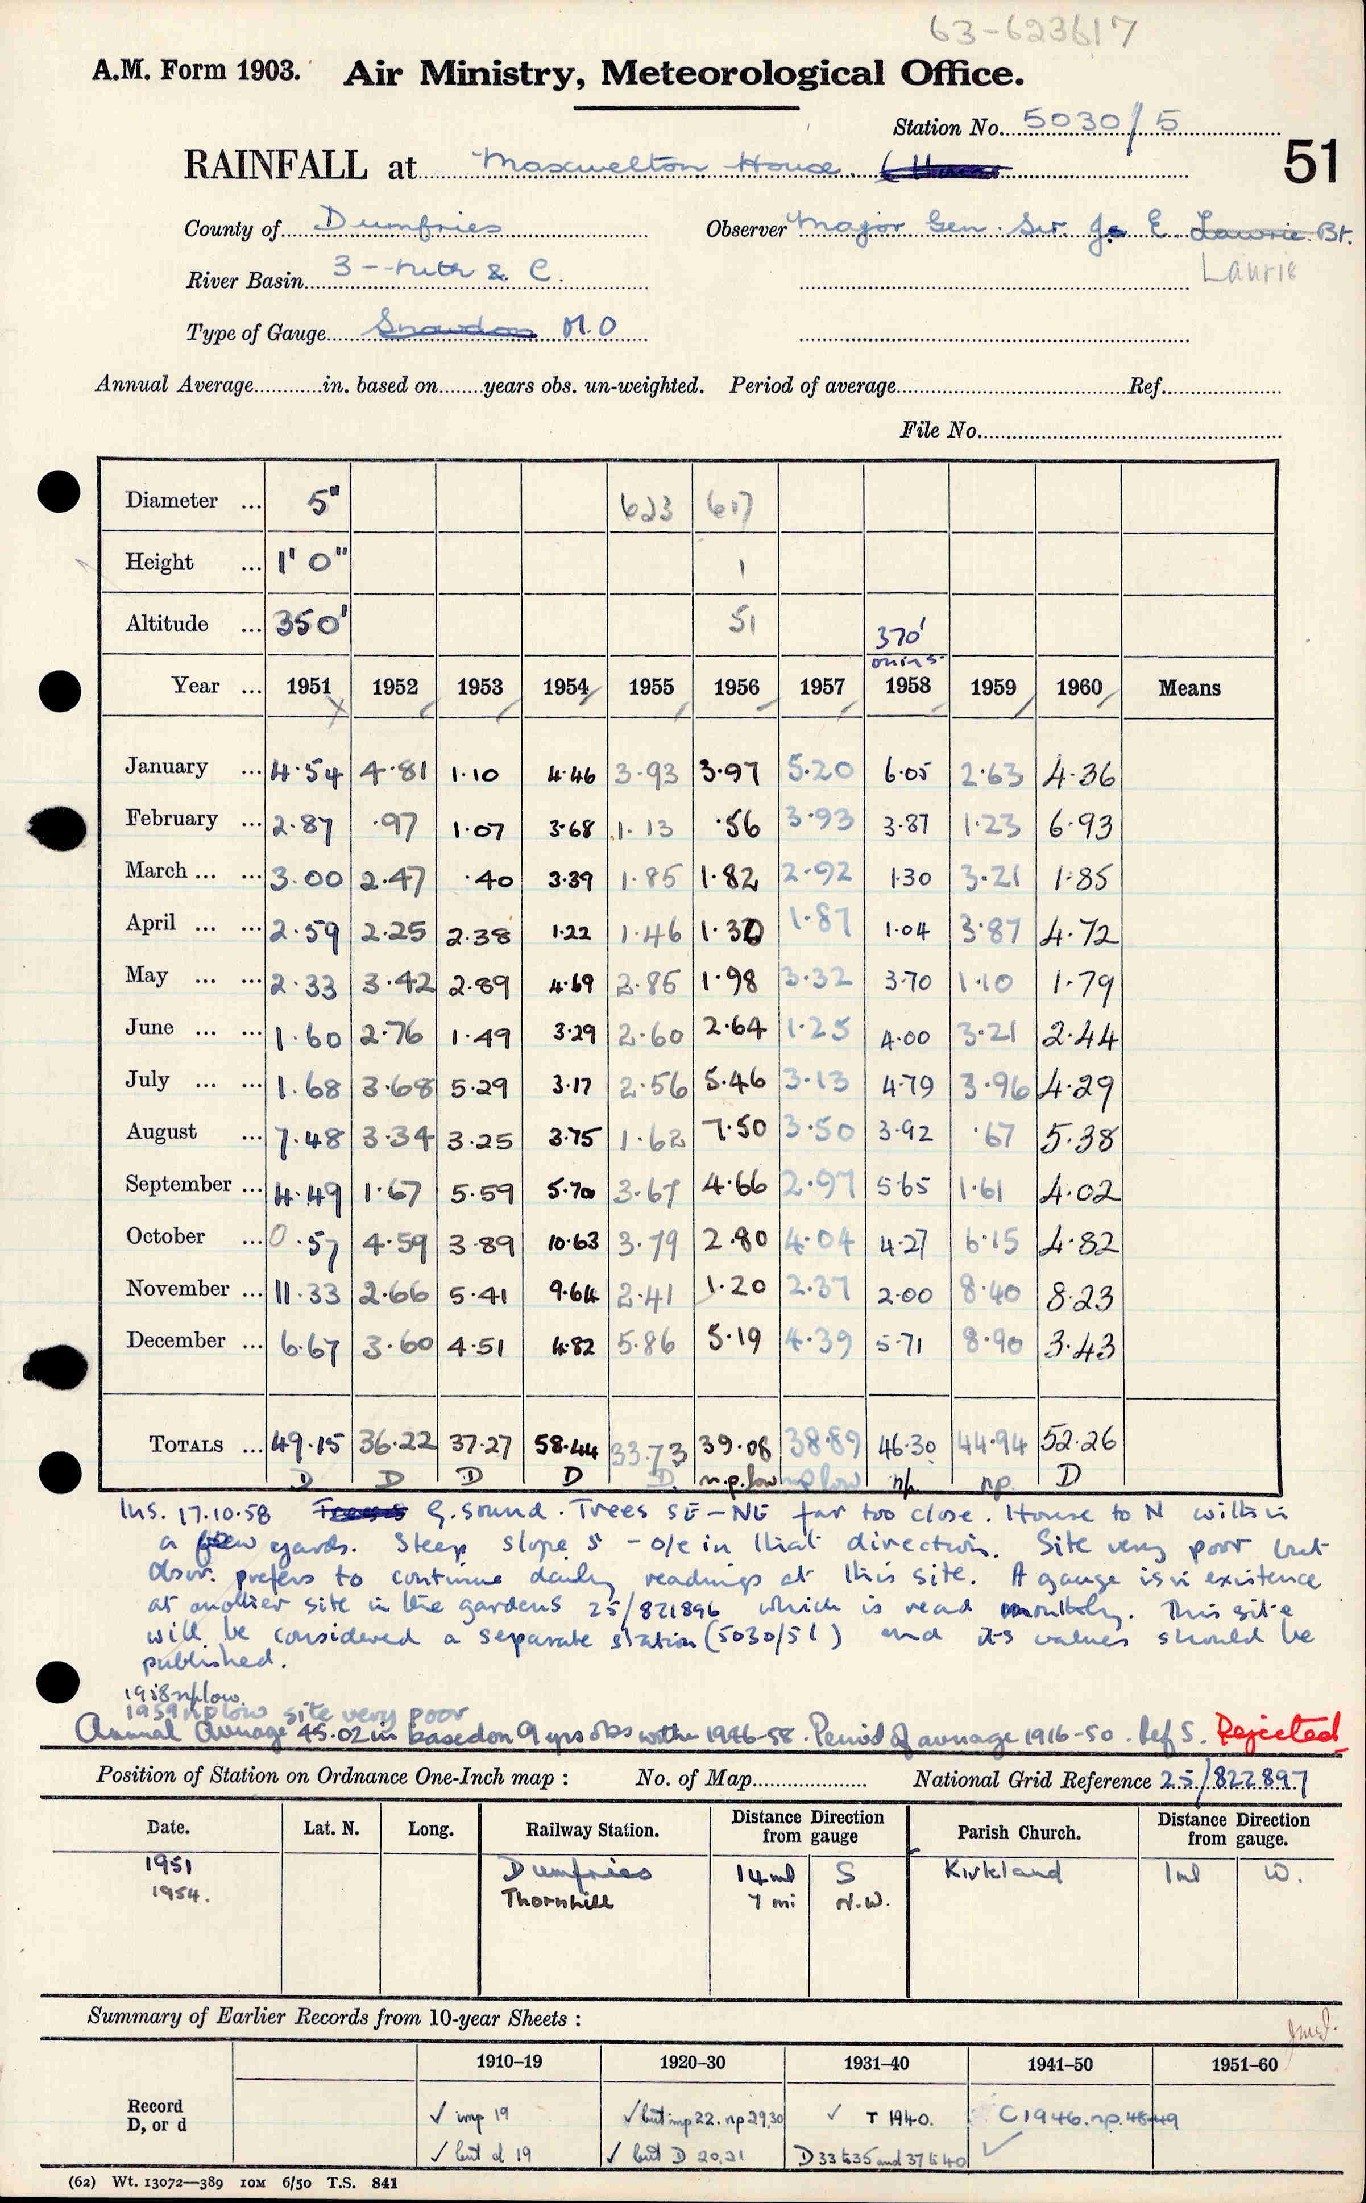 63-623617
A.M. Form 1903. Air Ministry, Meteorological Office.
Station No. 5030/5
51
RAINFALL at Maxwelton House
County of Dumfries Observer Major Gen. Sir J. E. Laurie Bt.
Laurie
River Basin 3 - Nith & C.
Type of Gauge Snowdon M.O
Annual Average in. based on years obs. un-weighted. Period of average Ref.
File No.
Diameter ... 5" 623 617
Height ... 1' 0" 1
Altitude ... 350' 51 370'
omins.
Year ... 1951 1952 1953 1954 1955 1956 1957 1958 1959 1960 Means
January ... 4.54 4.81 1.10 4.46 3.93 3.97 5.20 6.05 2.63 4.36
February ... 2.87 .97 1.07 3.68 1.13 .56 3.93 3.87 1.23 6.93
March ... ... 3.00 2.47 .40 3.39 1.85 1.82 2.92 1.30 3.21 1.85
April ... ... 2.59 2.25 2.38 1.22 1.46 1.30 1.87 1.04 3.87 4.72
May ... ... 2.33 3.42 2.89 4.69 2.85 1.98 3.32 3.70 1.10 1.79
June ... ... 1.60 2.76 1.49 3.29 2.60 2.64 1.25 4.00 3.21 2.44
July ... ... 1.68 3.68 5.29 3.17 2.56 5.46 3.13 4.79 3.96 4.29
August ... 7.48 3.34 3.25 3.75 1.62 7.50 3.50 3.92 .67 5.38
September ... 4.49 1.67 5.59 5.70 3.67 4.66 2.97 5.65 1.61 4.02
October ... 0.57 4.59 3.89 10.63 3.79 2.80 4.04 4.27 6.15 4.82
November ... 11.33 2.66 5.41 9.64 2.41 1.20 2.37 2.00 8.40 8.23
December ... 6.67 3.60 4.51 4.82 5.86 5.19 4.39 5.71 8.90 3.43
TOTALS ... 49.15 36.22 37.27 58.44 33.73 39.08 38.89 46.30 44.94 52.26
D D D D D. n.p. low np low np np D
Ins. 17.10.58 G. sound. Trees SE-NE far too close. House to N within
a few yards. Steep slope S - o/e in that direction. Site very poor but
obsvr. prefers to continue daily readings at this site. A gauge is in existence
at another site in the gardens 25/821896 which is read monthly. This site
will be considered a separate station (5030/51) and its values should be
published.
1958 np low
1959 np low site very poor
Annual Average 45.02 in based on 9 yrs obs within 1946-58. Period of average 1916-50. Ref S. Rejected
Position of Station on Ordnance One-Inch map : No. of Map National Grid Reference 25/822897
Date. Lat. N. Long. Railway Station. Distance Direction from gauge Parish Church. Distance Direction from gauge.
1951 Dumfries 14 ml S Kirkland 1 ml W.
1954. Thornhill 7 mi N.W.
Summary of Earlier Records from 10-year Sheets :
1910–19 1920–30 1931–40 1941–50 1951–60
Record
D, or d
✓ imp 19 ✓ but imp 22. np 29,30 ✓ T 1940. C 1946. np. 48-49
✓ but d 19 ✓ but D 20,21 D 33 to 35 and 37 to 40 ✓
(62) Wt. 13072—389 10M 6/50 T.S. 841